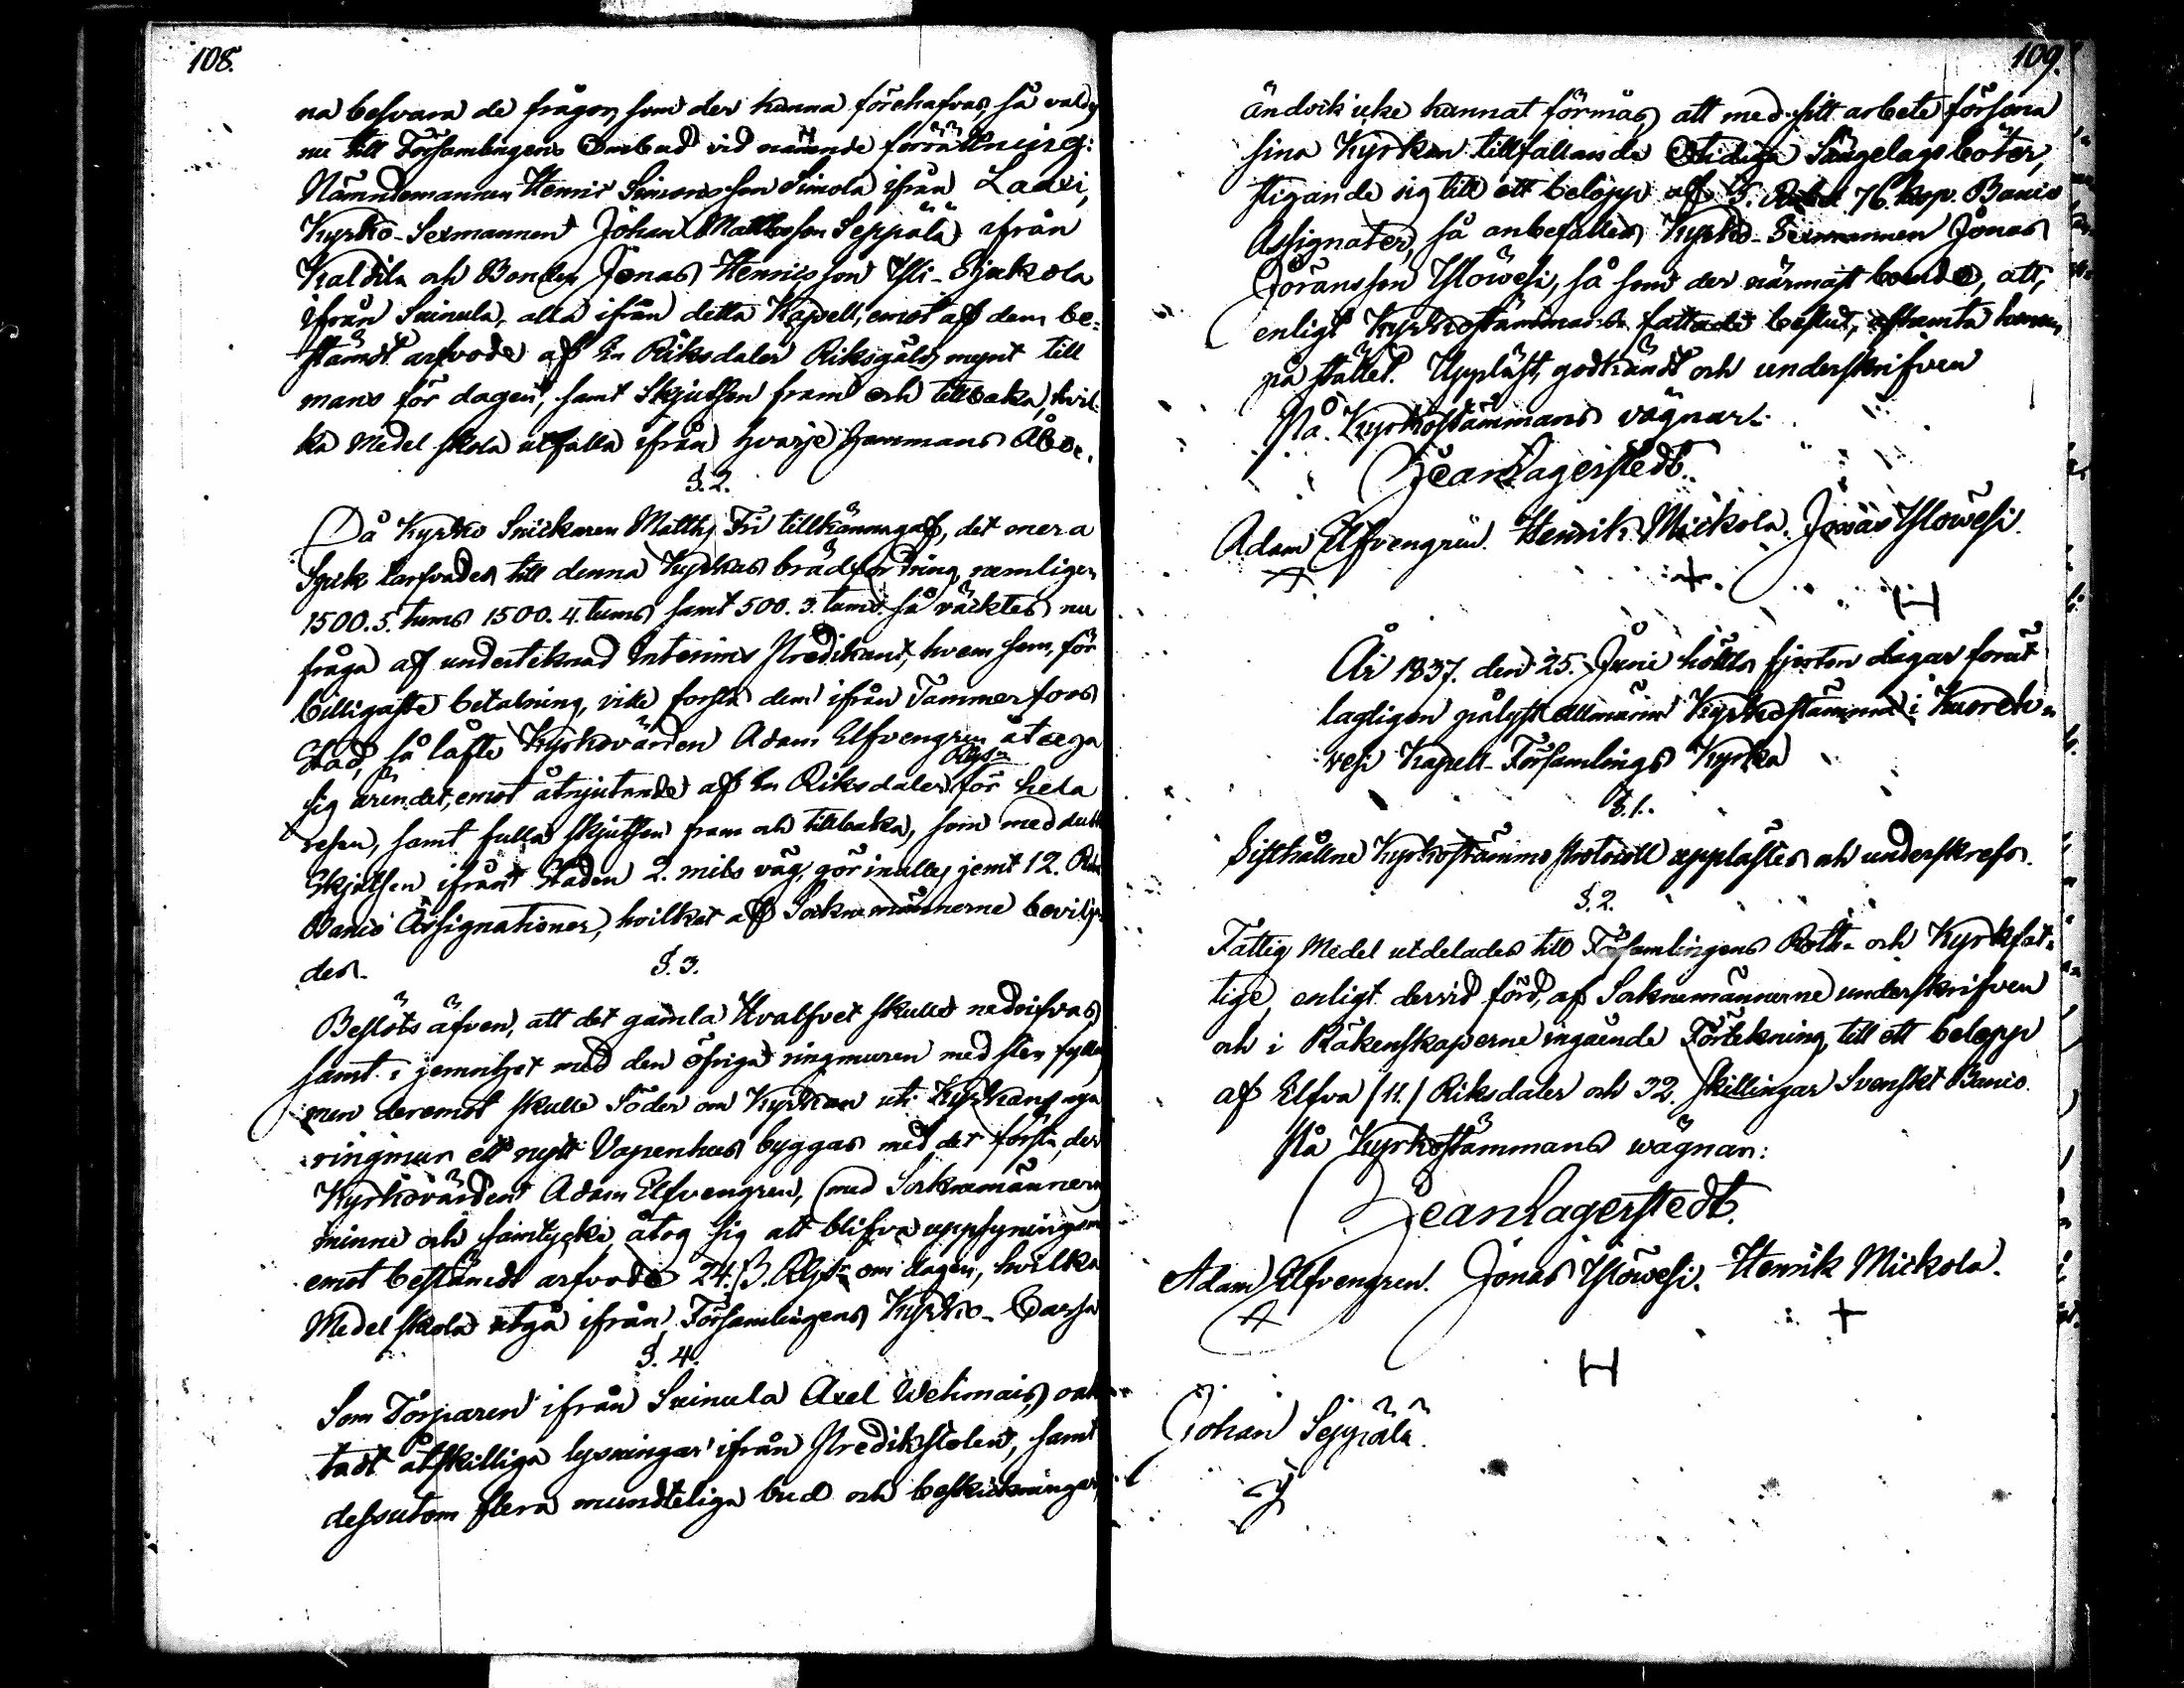 108.
na besvara de frågor, som der kunna förehafvas, så valdes
nu till Församlingens Ombud vid nämnde förrättning:
Nämndemannen Henric Simonsson Simola ifrån Laaxi,
Kyrko-Sexmannen Johan Mattsson Seppälä ifrån
Kaldila och Bonden Jonas Henricsson Yli-Sjukola
ifrån Suinula, alla ifrån detta Kapell, emot af dem be-
stämdt arfvode af En Riksdaler Riksgälds mynt till
mans för dagen, samt Skjutsen fram och tillbaka, hvil-
ka Medel skola utfalla ifrån hvarje Hemmans Åboe.
§. 2.
Då Kyrko Snickaren Matths Fri tillkännagaf, det mera
Spik tarfvades till denna Kyrkas brädfordring, nemligen
1500. 5. tums 1500. 4. tums samt 500. 3. tums så väcktes nu
fråga af undertecknad Interims Predikant, hvem som, för
billigaste betalning, ville forsla dem ifrån Tammerfors
Stad, så låfte Kyrkovärden Adam Elfvengren åtaga
sig ärendet, emot åtnjutande af En Riksdaler Rgs för hela
resan, samt fulla skjutsen fram och tillbaka, som med dubb
Skjutsen ifrån Staden 2. mils väg, gör inalles jemt 12. Rdr
Banco Assignationer, hvilket af Socknemännerne bevilja-
des.
§. 3.
Beslöts äfven, att det gamla Hvalfvet skulle nedrifvas
samt i jemnhet med den öfriga ringmuren med sten fyllas
men deremot skulle Söder om Kyrkan uti Kyrkans nya
ringmur ett nytt Vapenhus byggas med det första, der
Kyrkovärden Adam Elfvengren, med Socknemännerns
minne och samtycke åtog sig att blifva uppsyningsm
emot bestämdt arfvode 24. β. Rgs om dagen, hvilka
Medel skola utgå ifrån Församlingens Kyrko-Cassa
§. 4.
Som Torparen ifrån Suinula Axel Wehmais, oak
tadt åtskilliga lysningar ifrån Predikstolen, samt
dessutom flera mundteliga bud och beskickningar,
109.
ändock icke kunnat förmås, att med sitt arbete försona
sina Kyrkan tillfallande Otidiga Sängelagsböter,
stigande sig till ett belopp af 5. Rubel 76. kop. Banco
Assignater, så anbefalles Kyrko-Sexmannen Jonas
Göransson Ylöwesi, så som der närmast boende, att,
enligt Kyrkostämmans fattade beslut, afhämta honom
på stället. Uppläst, godkändt och underskrifven
På Kyrkostämmans vägnar:
Jean Lagerstedt.
Adam Elfvengren. Henrik Mickola. Jonas Ylöwesi.
År 1837. den 25. Juni hölls fjorton dagar förut
lagligen pålyst allmänn Kyrkostämma i Kuoreh-
vesi Kapell-Församlings Kyrka
§. 1.
Sisthållne Kyrkostämmo Protocoll upplästes och underskrefs.
§. 2.
Fattig Medel utdelades till Församlingens Roth- och Kyrkfat-
tige, enligt dervid förd, af Socknemännerne underskrifven
och i Räkenskaperne ingående Förtekning, till ett belopp
af Elfva /11./ Riksdaler och 32. Skillingar Svenskt Banco.
På Kyrkostämmans wägnar:
Jean Lagerstedt.
Adam Elfvengren. Jonas Ylöwesi. Henrik Mickola.
Johan Seppälä.